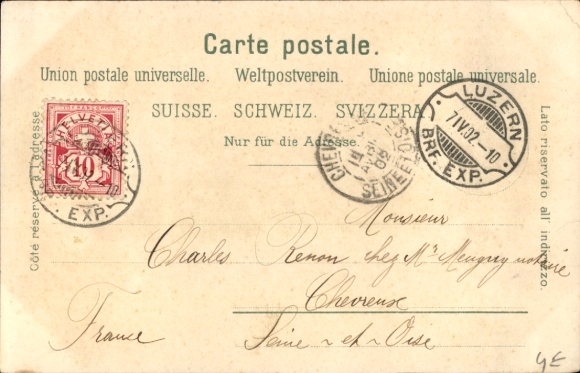 Carte postale.
Union postale universelle. Weltpostverein. Unione postale universale.
SUISSE. SCHWEIZ. SVIZZERA.
Nur für die Adresse.
Côté réservé à l'adresse.
Lato riservato all' indirizzo.
FRANCO
HELVETIA
10
EXP.
CHEVREUSE
SEINE ET OISE
LUZERN
7 IV.02.-10
BRF. EXP.
Monsieur
Charles Renon chez Mr. notaire
Chevreuse
France Seine-et-Oise